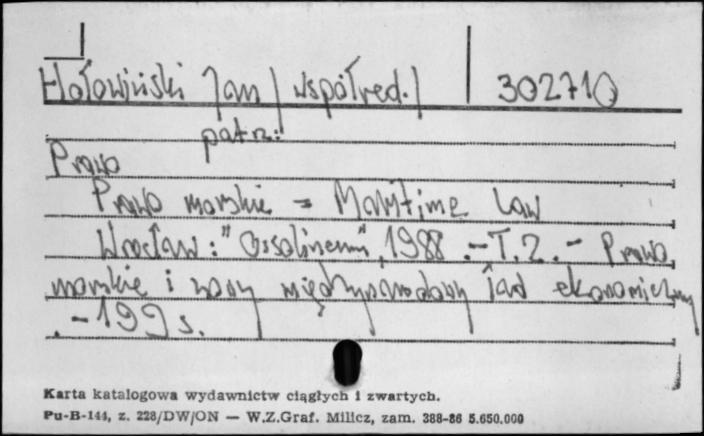 Hołowiński Jan /współred./ 302710
patrz:
Prawo
Prawo morskie = Maritime Law
Wrocław: "Ossolineum", 1988 .- T.2. - Prawo
morskie i nowy międzynarodowy ład ekonomiczny
.- 199 s.
Karta katalogowa wydawnictw ciągłych i zwartych.
Pu-B-144, z. 228/DW/ON — W.Z.Graf. Milicz, zam. 388-86 5.650.000